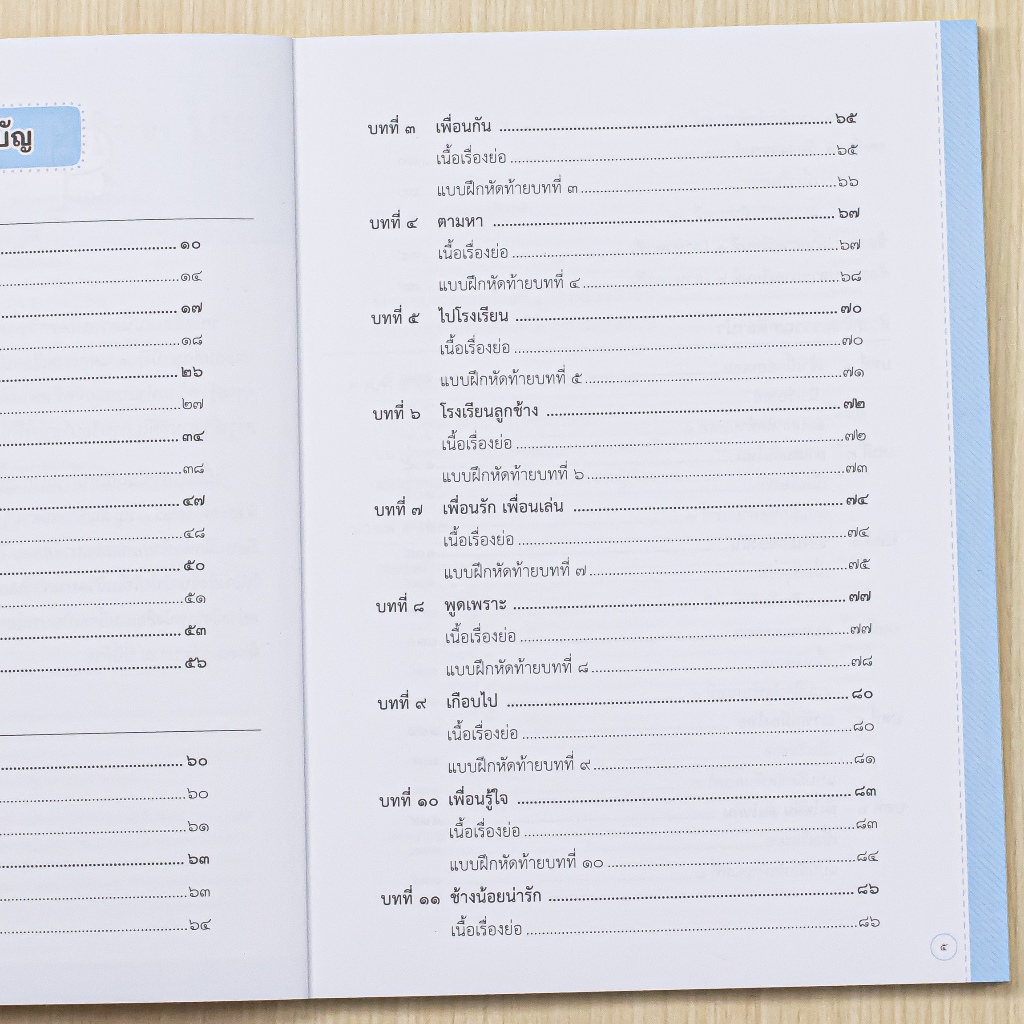 บัญ
๑๐
๑๔
๑๗
๑๘
๒๖
๒๗
๓๔
๓๘
๔๗
๔๘
๕๐
๕๑
๕๓
๕๖
๖๐
๖๐
๖๑
๖๓
๖๓
๖๔
บทที่ ๓ เพื่อนกัน ........ ๖๕
เนื้อเรื่องย่อ ........ ๖๕
แบบฝึกหัดท้ายบทที่ ๓ ........ ๖๖
บทที่ ๔ ตามหา ........ ๖๗
เนื้อเรื่องย่อ ........ ๖๗
แบบฝึกหัดท้ายบทที่ ๔ ........ ๖๘
บทที่ ๕ ไปโรงเรียน ........ ๗๐
เนื้อเรื่องย่อ ........ ๗๐
แบบฝึกหัดท้ายบทที่ ๕ ........ ๗๑
บทที่ ๖ โรงเรียนลูกช้าง ........ ๗๒
เนื้อเรื่องย่อ ........ ๗๒
แบบฝึกหัดท้ายบทที่ ๖ ........ ๗๓
บทที่ ๗ เพื่อนรัก เพื่อนเล่น ........ ๗๔
เนื้อเรื่องย่อ ........ ๗๔
แบบฝึกหัดท้ายบทที่ ๗ ........ ๗๕
บทที่ ๘ พูดเพราะ ........ ๗๗
เนื้อเรื่องย่อ ........ ๗๗
แบบฝึกหัดท้ายบทที่ ๘ ........ ๗๘
บทที่ ๙ เกือบไป ........ ๘๐
เนื้อเรื่องย่อ ........ ๘๐
แบบฝึกหัดท้ายบทที่ ๙ ........ ๘๑
บทที่ ๑๐ เพื่อนรู้ใจ ........ ๘๓
เนื้อเรื่องย่อ ........ ๘๓
แบบฝึกหัดท้ายบทที่ ๑๐ ........ ๘๔
บทที่ ๑๑ ช้างน้อยน่ารัก ........ ๘๖
เนื้อเรื่องย่อ ........ ๘๖
๕